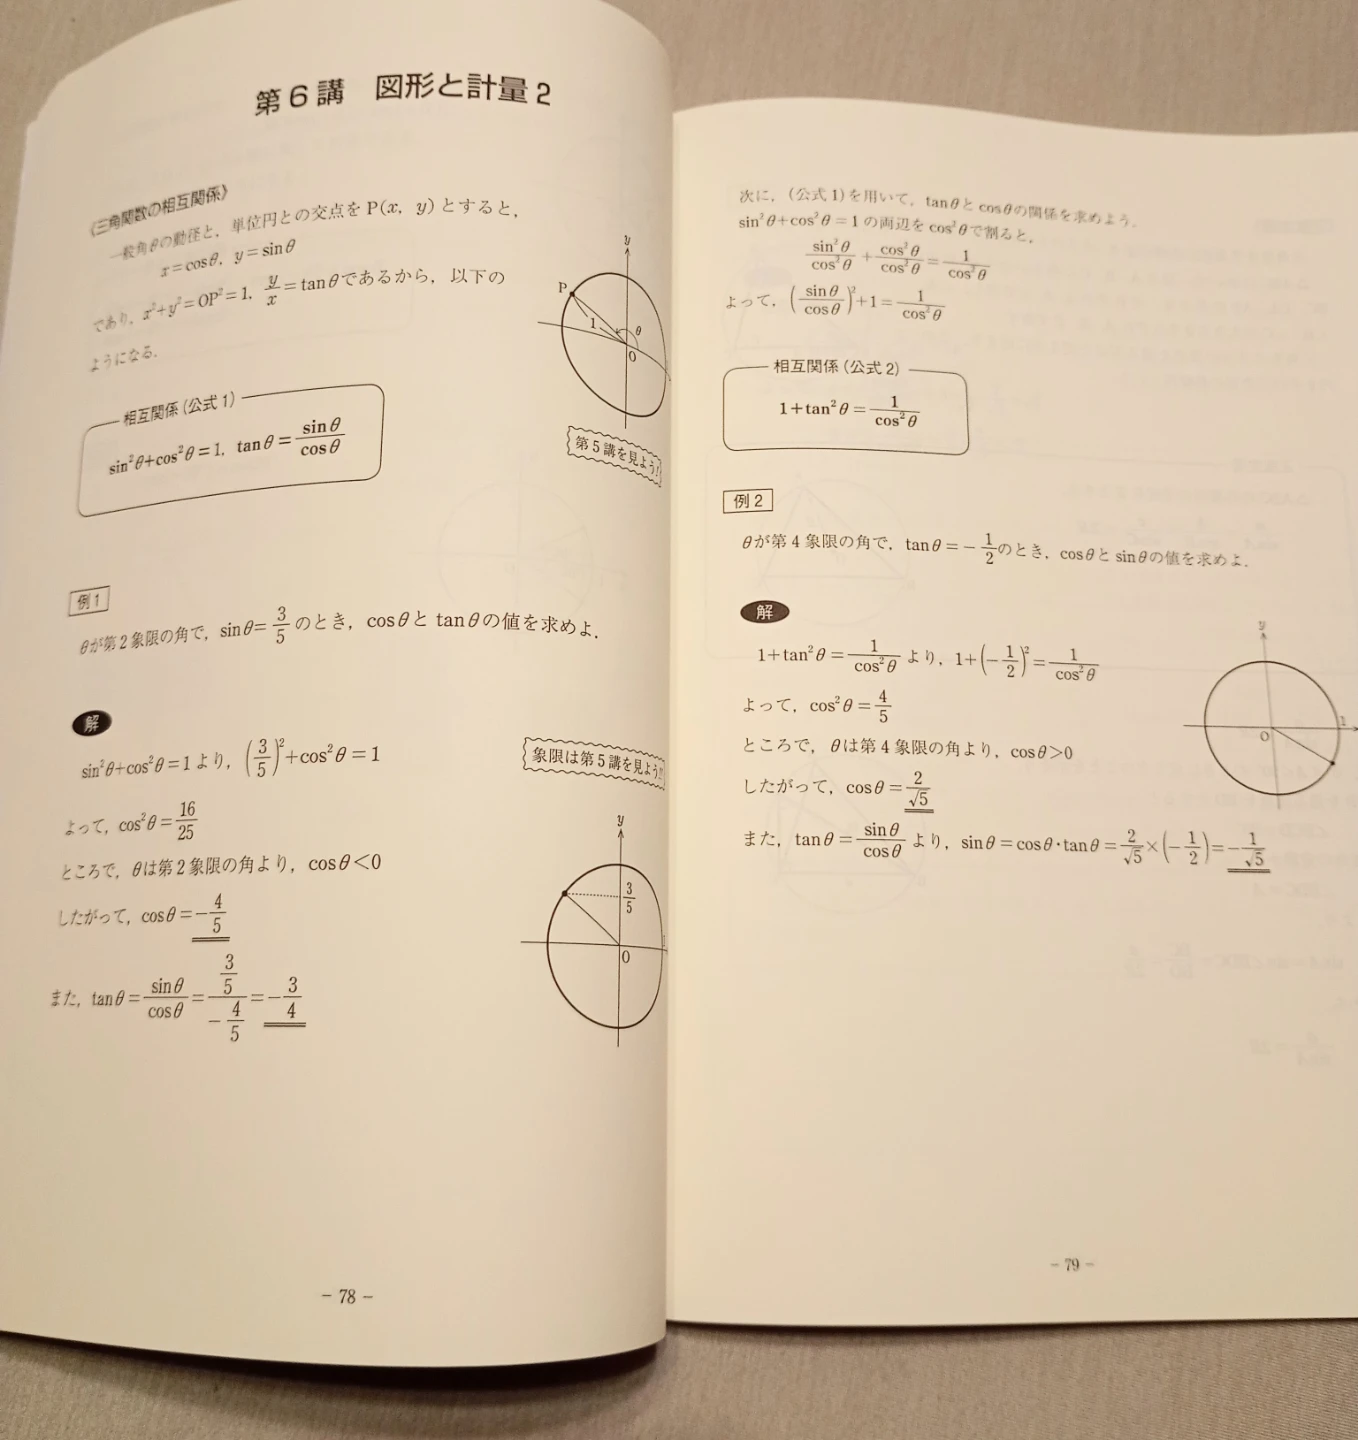 第6講　図形と計量2
《三角関数の相互関係》
一般角θの動径と，単位円との交点をP(x, y)とすると，
x＝cosθ，y＝sinθ
であり，x²+y²＝OP²＝1，y/x＝tanθであるから，以下の
ようになる．
y
P
1
θ
O
相互関係(公式1)
sin²θ+cos²θ＝1，tanθ＝sinθ/cosθ
第5講を見よう！
例1
θが第2象限の角で，sinθ＝3/5のとき，cosθとtanθの値を求めよ．
解
sin²θ+cos²θ＝1より，(3/5)²+cos²θ＝1
よって，cos²θ＝16/25
ところで，θは第2象限の角より，cosθ<0
したがって，cosθ＝−4/5
また，tanθ＝sinθ/cosθ＝(3/5)/(−4/5)＝−3/4
象限は第5講を見よう!!
y
3/5
O
− 78 −
次に，(公式1)を用いて，tanθとcosθの関係を求めよう．
sin²θ+cos²θ＝1の両辺をcos²θで割ると，
sin²θ/cos²θ+cos²θ/cos²θ＝1/cos²θ
よって，(sinθ/cosθ)²+1＝1/cos²θ
相互関係(公式2)
1+tan²θ＝1/cos²θ
例2
θが第4象限の角で，tanθ＝−1/2のとき，cosθとsinθの値を求めよ．
解
1+tan²θ＝1/cos²θより，1+(−1/2)²＝1/cos²θ
よって，cos²θ＝4/5
ところで，θは第4象限の角より，cosθ>0
したがって，cosθ＝2/√5
また，tanθ＝sinθ/cosθより，sinθ＝cosθ・tanθ＝2/√5×(−1/2)＝−1/√5
y
O
1
− 79 −